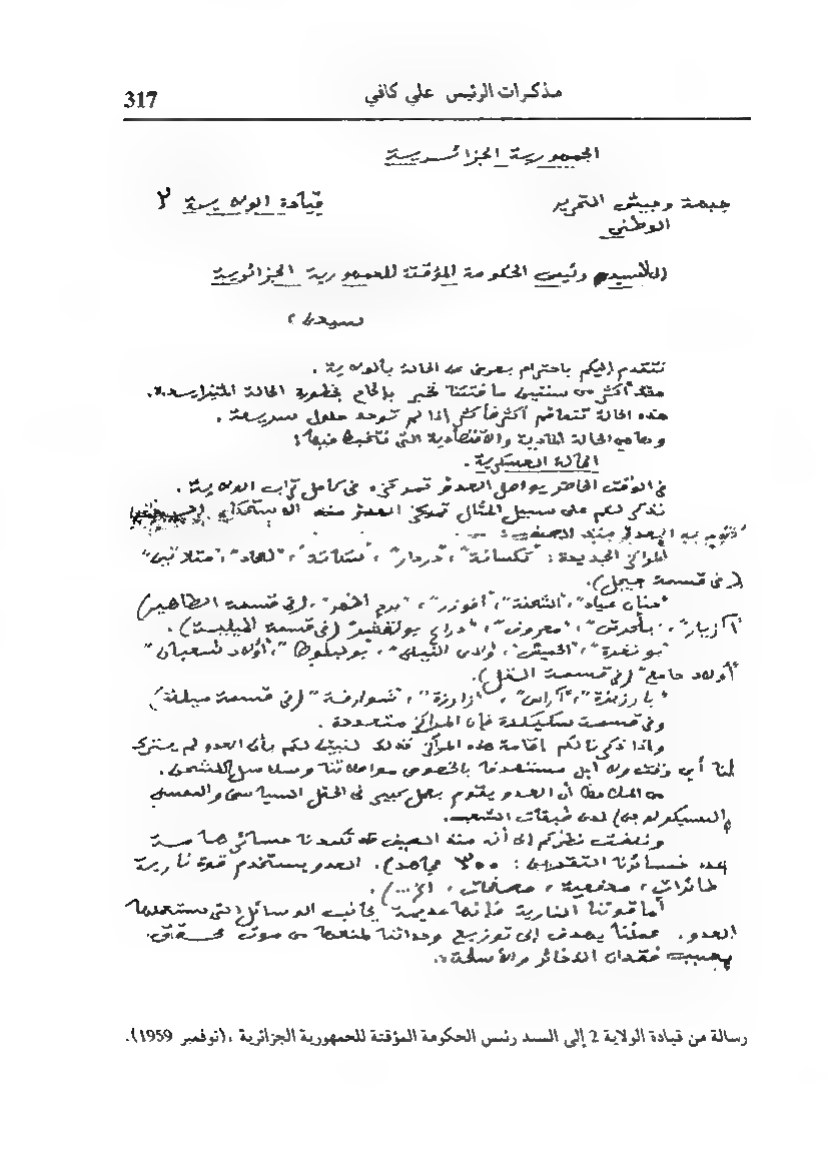 مذكرات الرئيس علي كافي
317
الجمهورية الجزائرية
جبهة وجيش التحرير
الوطني
قيادة الولاية ٢
السيد رئيس الحكومة المؤقتة للجمهورية الجزائرية
سيدي،
نتقدم إليكم باحترام بعرض عن الحالة بالولاية .
منذ أكثر من سنتين ما فتئنا نخبر بإلحاح بخطورة الحالة
هذه الحالة تتفاقم أكثر فأكثر إذا لم توجد حلول سريعة .
وها هي الحالة المادية والاقتصادية التي نتخبط فيها :
الحالة العسكرية .
في الوقت الحاضر يواصل العدو تمركزه في كامل تراب الولاية .
نذكر لكم على سبيل المثال تمركز العدو منذ
العدو منذ الصيف : -
المراكز الجديدة : "تكسانة"، "دردار"،
(في قسمة جيجل).
"الشحنة"، "برج الطهر"، (في قسمة الطاهير)
"معروف"، "دراع (في قسمة الميلية) .
"أولاد
"أولاد جامع" (في قسمة القل).
"آراس"، "زارزة"، (في قسمة ميلة)
وفي قسمة سكيكدة فإن المراكز متعددة .
وإذا ذكرنا لكم إقامة هذه المراكز فذلك لنبين لكم بأن العدو لم يترك
لنا أي وقت ولا أي مستنفدا بالخصوص مواصلاتنا
من الملاحظ أن العدو يقوم بعمل كبير في الحقل السياسي والنفسي
(البسيكولوجي) لدى طبقات الشعب.
ونلفت نظركم إلى أنه منذ الصيف قد تكبدنا خسائر هامة
خسائرنا التقديري : ٣٥٠٠ مجاهد). العدو يستخدم قوة نارية
طائرات ، مدفعية ، مصفحات ، الخ...).
أما قوتنا النارية فإنها عديمة بجانب الوسائل التي يستعملها
العدو. عملنا يهدف إلى توزيع وحداتنا لمنعها من موت محقق.
بسبب فقدان الذخائر والأسلحة.
رسالة من قيادة الولاية 2 إلى السيد رئيس الحكومة المؤقتة للجمهورية الجزائرية ،(نوفمبر 1959).